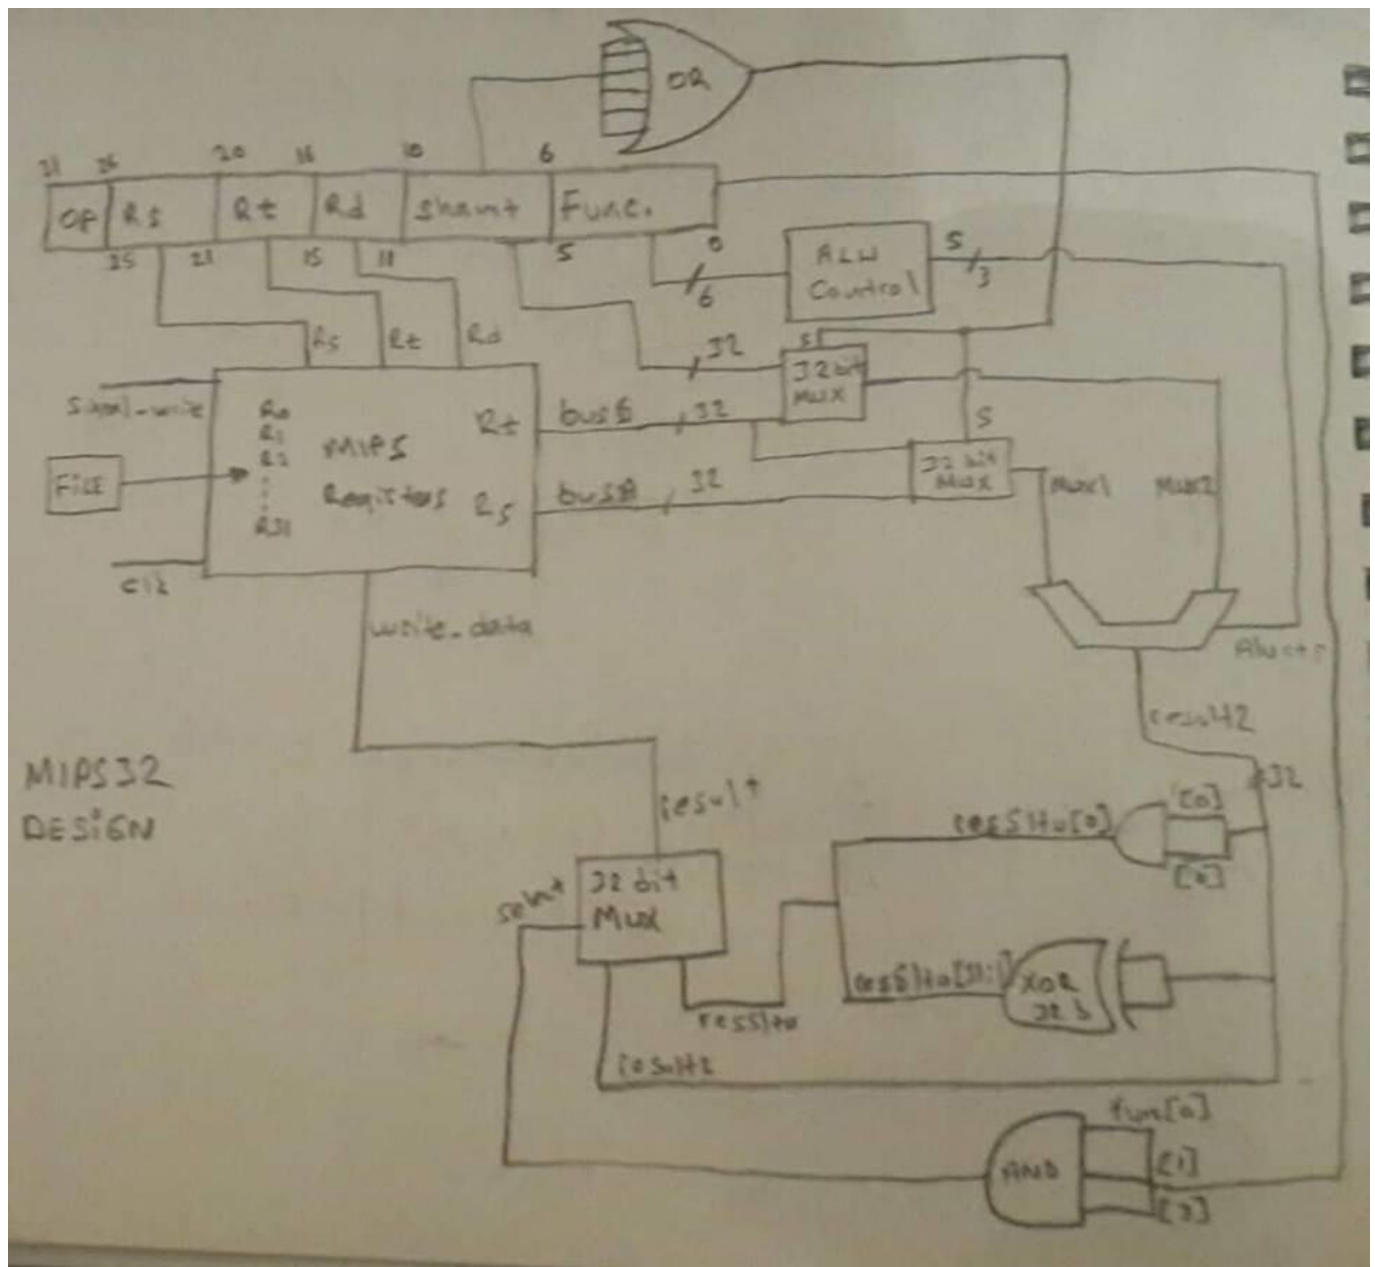 OR
31 26 20 16 10 6
OP Rs Rt Rd Shamt Func.
25 21 15 11 5 0
6
ALU
Control
S
3
Rs Rt Rd
32
S
32 bit
MUX
signal_write
R0
R1
R2
R31
MIPS
Registers
Rt
Rs
busB
32
busA
32
S
32 bit
MUX
Mux1 Mux2
FILE
clk
write_data
Aluctr
result2
32
MIPS32
DESIGN
result
resSltu[0]
[0]
[0]
32 bit
MUX
resSltu[31:1]
XOR
resSltu
result2
fun[0]
AND
[1]